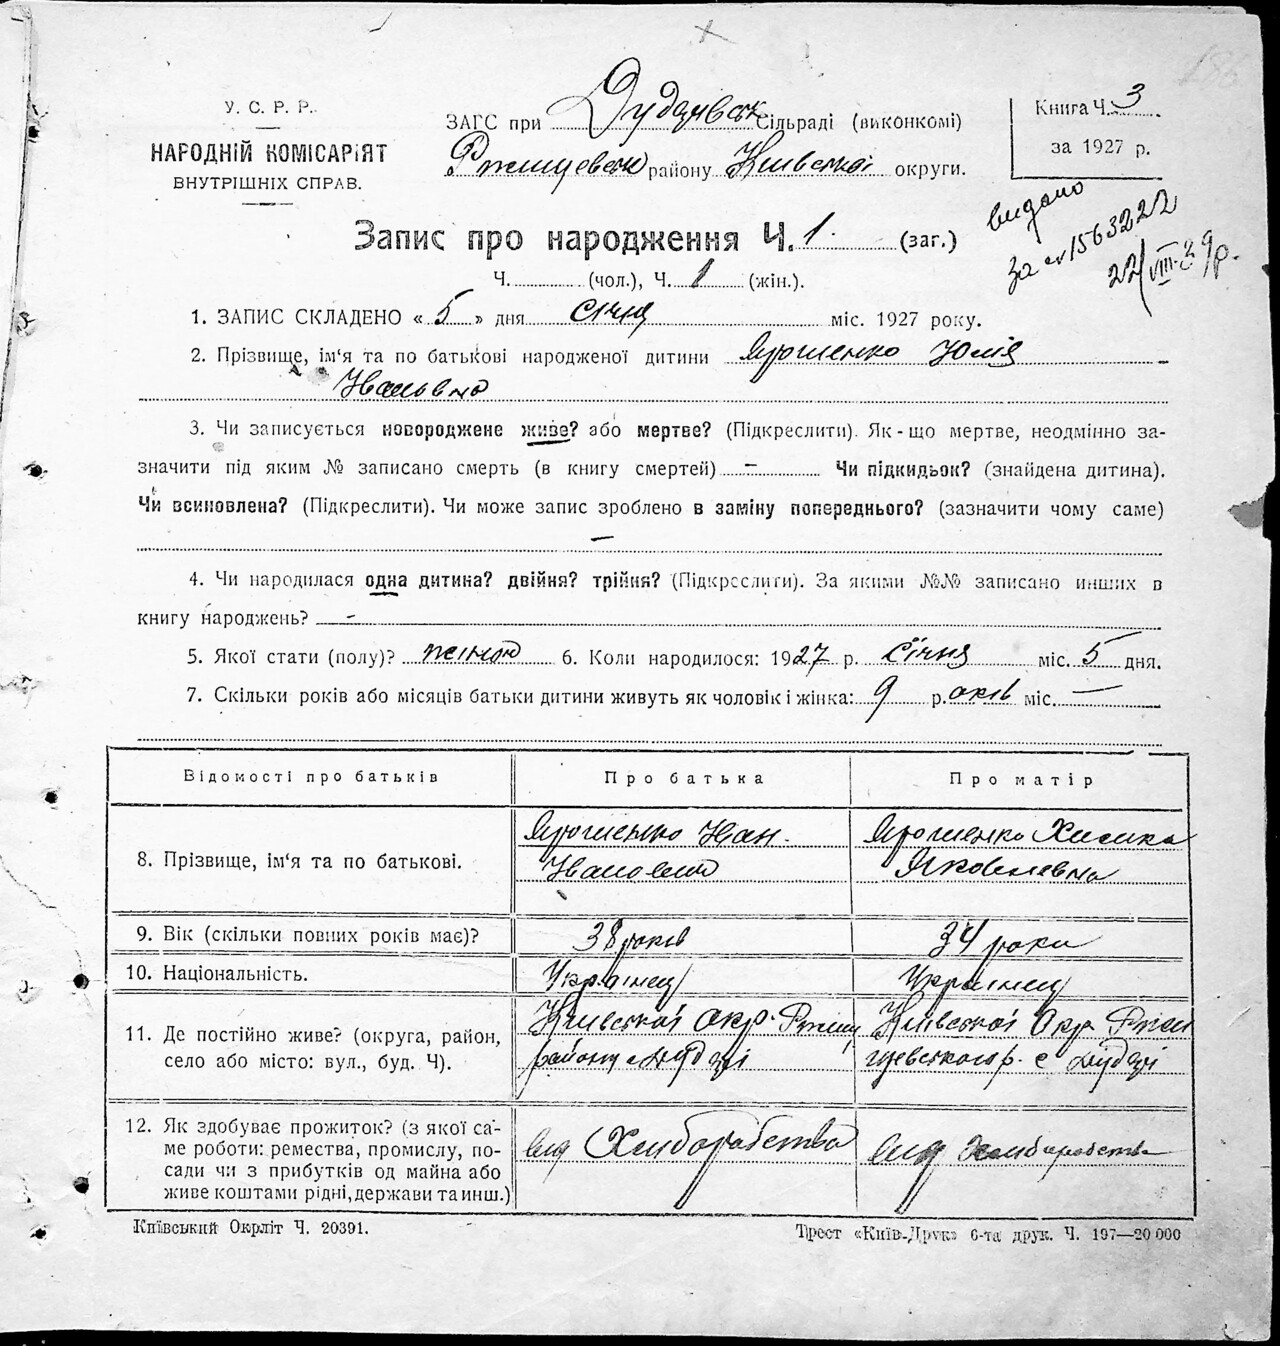 186
У. С. Р. Р.
НАРОДНІЙ КОМІСАРІЯТ
ВНУТРІШНІХ СПРАВ.
ЗАГС при Дудар́вськ Сільраді (виконкомі)
Ржищевськ району Київської округи.
Книга Ч. 3
за 1927 р.
видано
за № 1563222
22/VIII-39р.
Запис про народження Ч. 1. (заг.)
Ч. (чол.), Ч. 1 (жін.).
1. ЗАПИС СКЛАДЕНО « 5 » дня січня міс. 1927 року.
2. Прізвище, ім'я та по батькові народженої дитини Ярошенко Юлія
Ивановна
3. Чи записується новороджене живе? або мертве? (Підкреслити). Як-що мертве, неодмінно за-
значити під яким № записано смерть (в книгу смертей) — Чи підкидьок? (знайдена дитина).
Чи всиновлена? (Підкреслити). Чи може запис зроблено в заміну попереднього? (зазначити чому саме)
—
4. Чи народилася одна дитина? двійня? трійня? (Підкреслити). За якими №№ записано инших в
книгу народжень? -
5. Якої стати (полу)? жіноч 6. Коли народилося: 1927 р. січня міс. 5 дня.
7. Скільки років або місяців батьки дитини живуть як чоловік і жінка: 9 р.оків міс. —
Відомості про батьків Про батька Про матір
8. Прізвище, ім'я та по батькові.
Ярошенко Иван
Иванович
Ярошенко
Яковлевна
9. Вік (скільки повних років має)? 38 років 34 роки
10. Національність. Українец Українец
11. Де постійно живе? (округа, район,
село або місто: вул., буд. Ч).
Київської окр. Ржищ
району с Дударі
Київської Окр Ржи
щевського р. с Дударі
12. Як здобуває прожиток? (з якої са-
ме роботи: ремества, промислу, по-
сади чи з прибутків од майна або
живе коштами рідні, держави та инш.)
від Хлиборобства
від Хлиборобства
Київський Окрліт Ч. 20391.
Трест «Київ-Друк» 6-та друк. Ч. 197—20 000